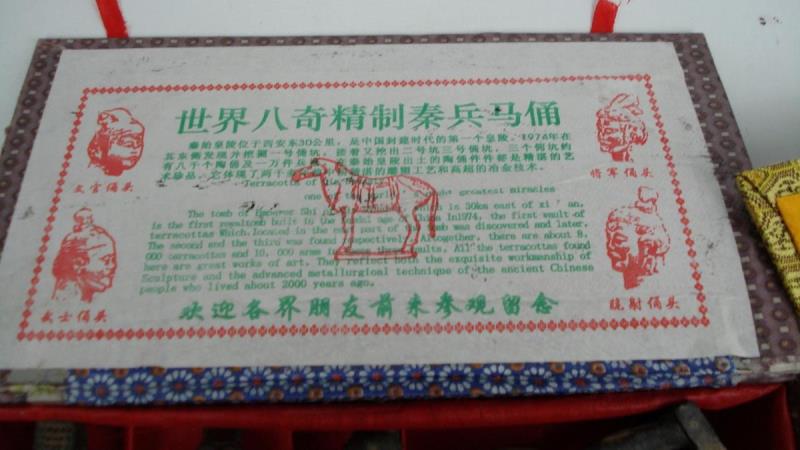 世界八奇精制秦兵马俑
秦始皇陵位于西安东30公里，是中国封建时代的第一个皇陵，1974年在
其东侧发现并挖掘一号俑坑，接着又挖出二号坑三号俑坑，三个俑坑约
有八千个陶俑及一万件兵 秦始皇陵出土的陶俑件件都是精湛的艺
术珍品，它体现了两千 湛的雕塑工艺和高超的冶金技术。
Terracotta of greatest miracles
The tomb of Emperor Shi is 30km east of xi'an,
is the first royaltomb built in the age China In1974, the first vault of
terracottas Which,located in the part of tomb was discovered and later,
The second and the third was found respectively, Artogether, there are about 8.
000 terracottas and 10, 000 arms vaults, All the terracottas found
here are great works of art. They reflect both the exquisite workmanship of
Sculpture and the advanced metallurgical technique of the ancient Chinese
people who lived about 2000 years ago.
欢迎各界朋友前来参观留念
文官俑头
将军俑头
武士俑头
跪射俑头